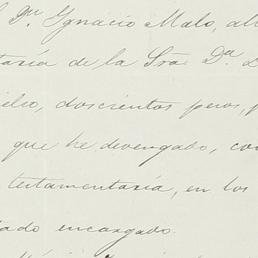 Dn. Ygnacio Malo, al
taría de la Sra. Da. D
lio, doscientos pesos, p
que he devengado, co
testamentaría, en los
tado encargado.